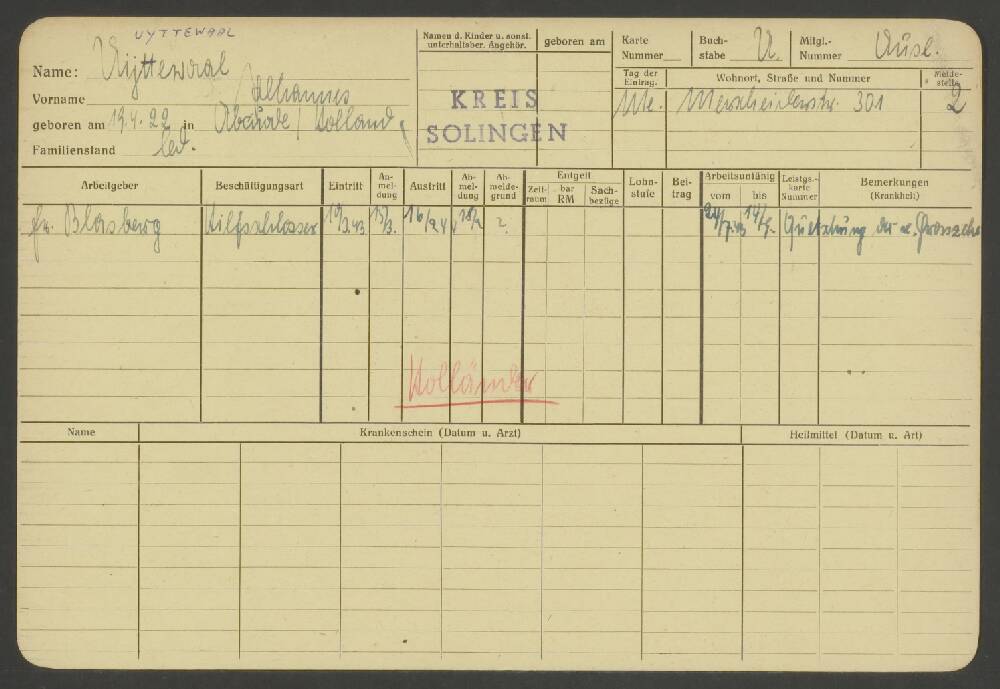 UYTTEWAAL
Name: Uijttewaal
Vorname Johannes
geboren am 19.4.22 in Abcoude / Holland
Familienstand led.
Namen d. Kinder u. sonst. unterhaltsber. Angehör.
geboren am
KREIS
SOLINGEN
Karte Nummer
Buchstabe U.
Mitgl.-Nummer Ausl.
Tag der Eintrag.
Wohnort, Straße und Nummer
Meldestelle
Merscheiderstr. 301
2
Arbeitgeber
Beschäftigungsart
Eintritt
An-mel-dung
Austritt
Ab-mel-dung
Ab-melde-grund
Entgelt
Zeit-raum
bar RM
Sach-bezüge
Lohn-stufe
Bei-trag
Arbeitsunfähig
vom
bis
Leistgs.-karte Nummer
Bemerkungen (Krankheit)
Fa. Blasberg
Hilfsschlosser
15/3.
16/2 44
18/2
2.
14/9.
Quetschung der
Holländer
Name
Krankenschein (Datum u. Arzt)
Heilmittel (Datum u. Art)